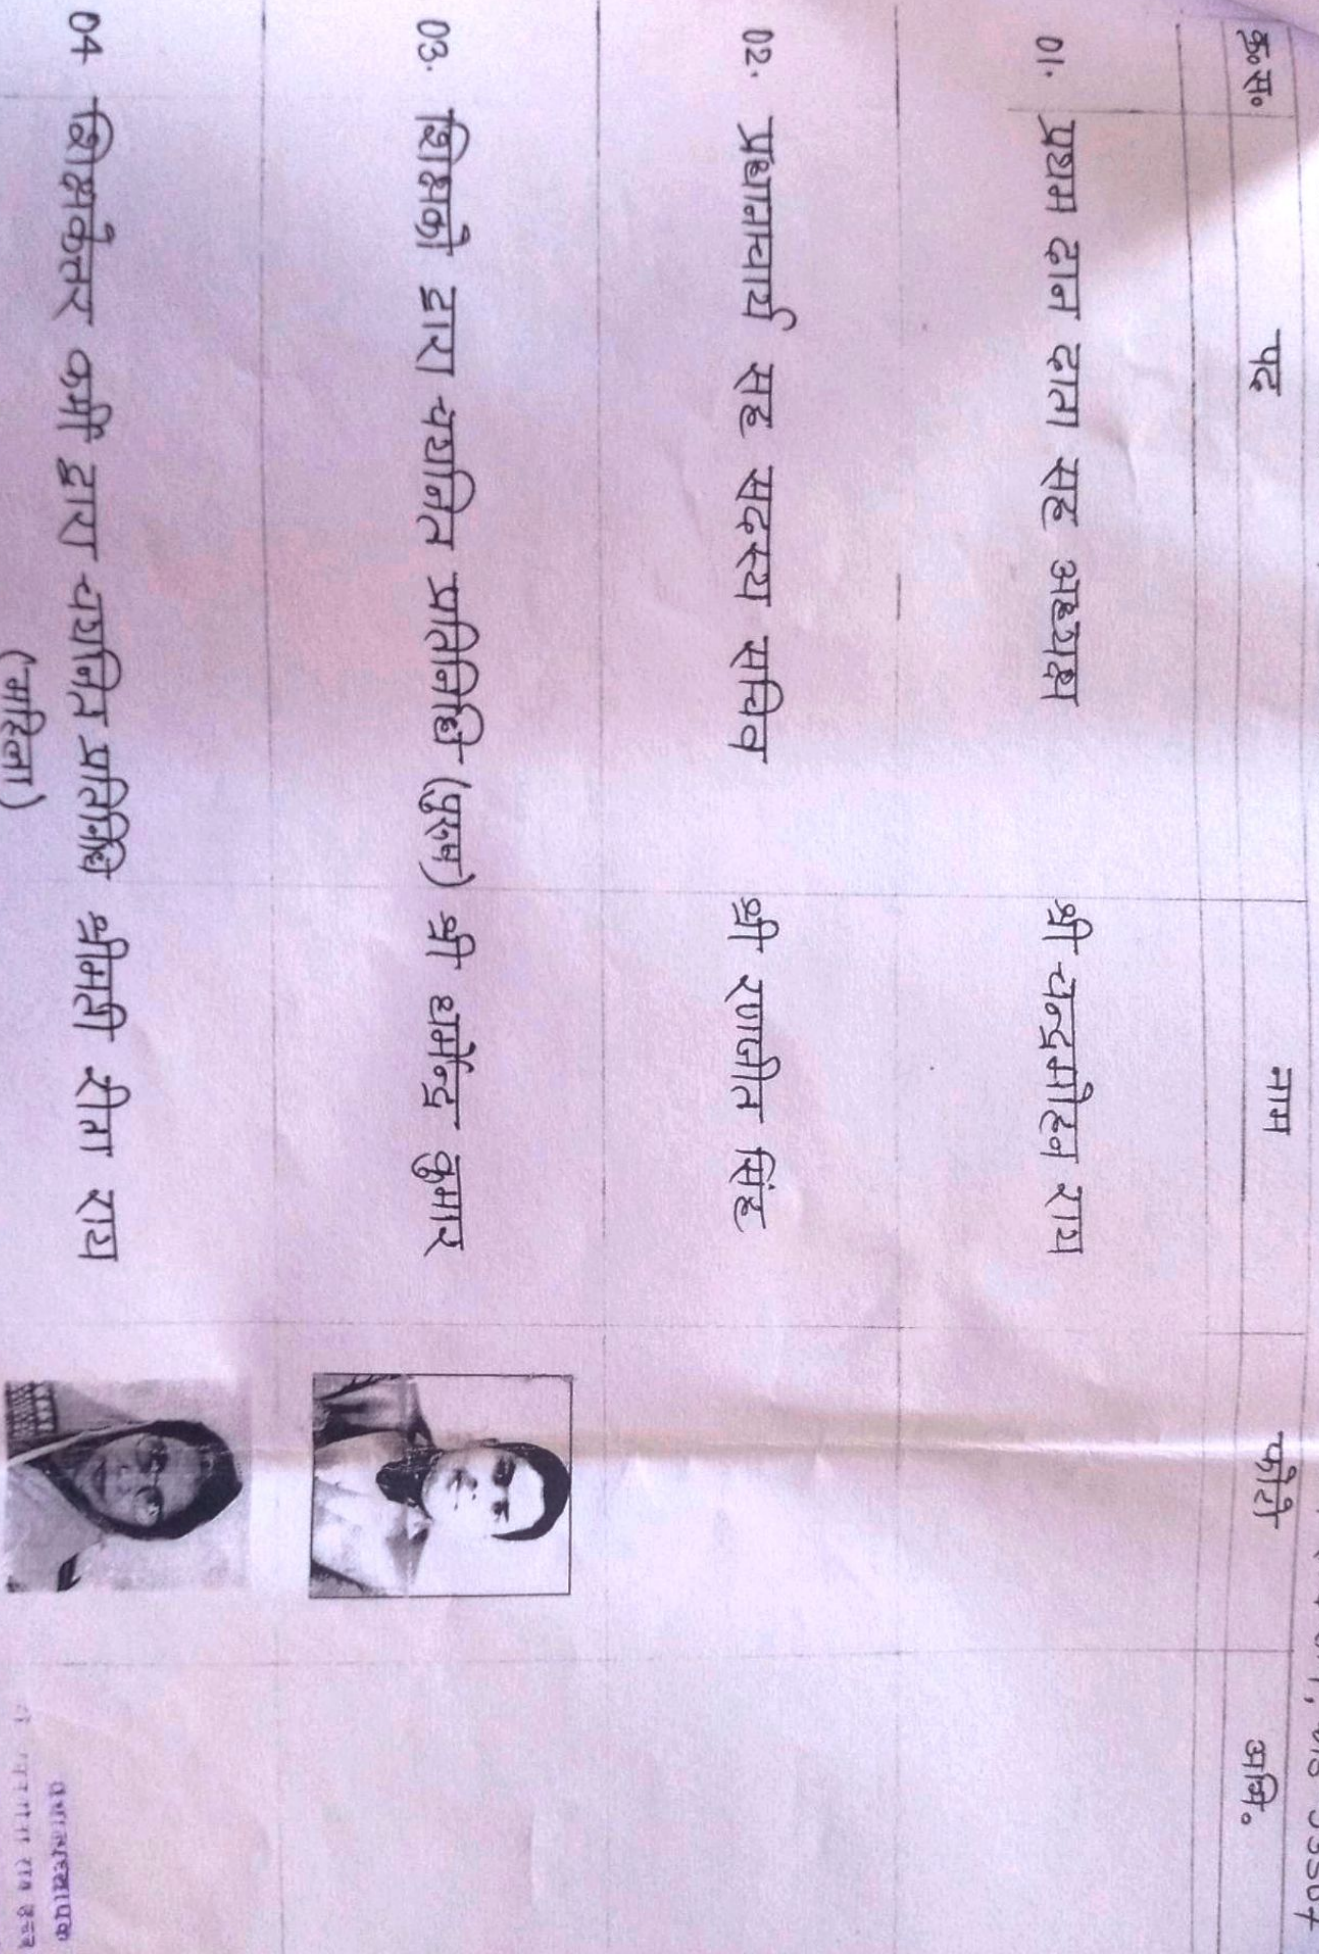 क्र॰स॰ पद नाम फोटो अभि॰
01. प्रथम दान दाता सह अध्यक्ष श्री चन्द्रमोहन राय
02. प्रधानाचार्य सह सदस्य सचिव श्री रणजीत सिंह
03. शिक्षको द्वारा चयनित प्रतिनिधि (पुरूष) श्री धर्मेन्द्र कुमार
04 शिक्षकेतर कर्मी द्वारा चयनित प्रतिनिधि श्रीमती रीता राय
(महिला)